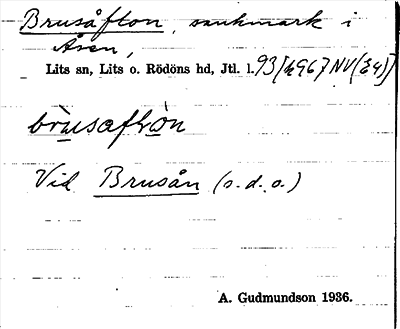 Brusåfton, sankmark i
Åsen,
Lits sn, Lits o. Rödöns hd, Jtl. l.
brùsaftòn
Vid Brusån (s.d.o.)
A. Gudmundson 1936.